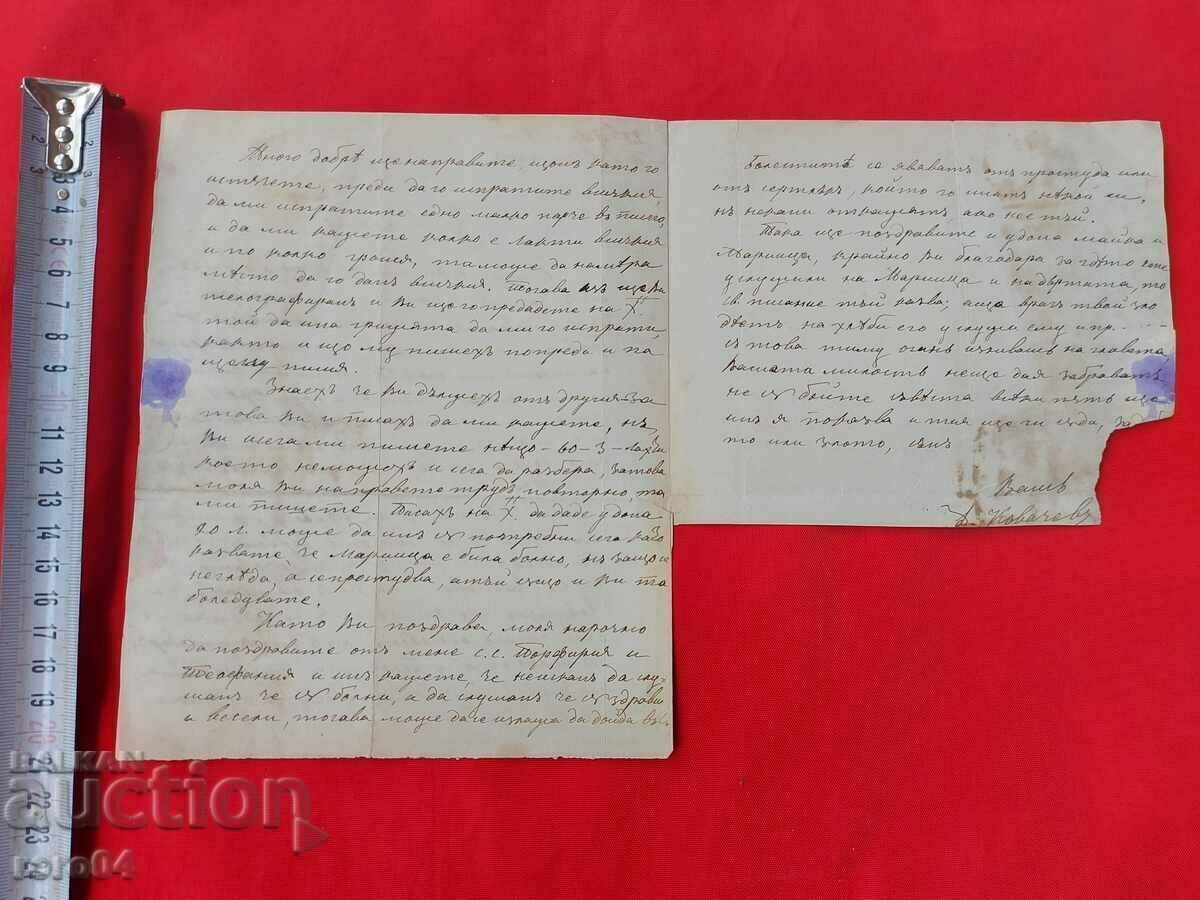 Много добрѣ ще направите, щомъ като го
истъчете, преди да го испратите всичкия
да ми испратите едно малко парче въ писмо,
и да ми кажете колко е лакти всичкия
и по колко гроша, та може да намѣра
мѣсто да го дамъ всичкия. Тогава азъ ще Ви
телографирамъ и Ви ще го предадете на Х.
той да има грижята да ми го испрати,
както и що му пишехъ попреди и па
ще му пиша.
Знаехъ че Ви длъжехъ отъ другия за
това Ви и писахъ да ми кажете, нъ
Ви сега ми пишете нѣщо - 60 - 3 -
което неможехъ и сега да разбера, затова
моля Ви направете трудъ повторно, та
ми пишете. Писахъ на Х. да даде у дома
20 л. може да имъ сѫ потребни сега като
казвате, че Марийца е била болно, нъ защо се
негледа, а се простудва, а тъй сѫщо и Ви та
боледувате.
Като Ви поздрава, моля нарочно
да поздравите отъ мене с.с. Порфирия и
Теофания и имъ кажете, че неискамъ да слу-
шамъ че сѫ болни, а да слушамъ че сѫ здрави
и весели, тогава може да се излажа да дойда въ
Болеститѣ са яваватъ отъ простуда или
отъ сертлѫкъ, който го иматъ нѣкои и,
нъ нерачи откажятъ ако не стъй.
Така ще поздравите и у дома майка и
Марийца, крайно Ви благодара за гдѣто сте
услушили на Марийца и надвѣтната, то
св. писание тъй казва; аще врагъ твой зло
дѣетъ на хлѣби его услуши ему и пр. - - -
съ това тиму огань изсиваш на главата,
Вашата милость неще да я забраватъ
не сѫ бойте свѣста всѣки пѫть ще
имъ я показва и тия ще ги сѫди,
то или злото, съмъ
Вашъ
Д. Ковачевъ
BALKAN
auction
rero04